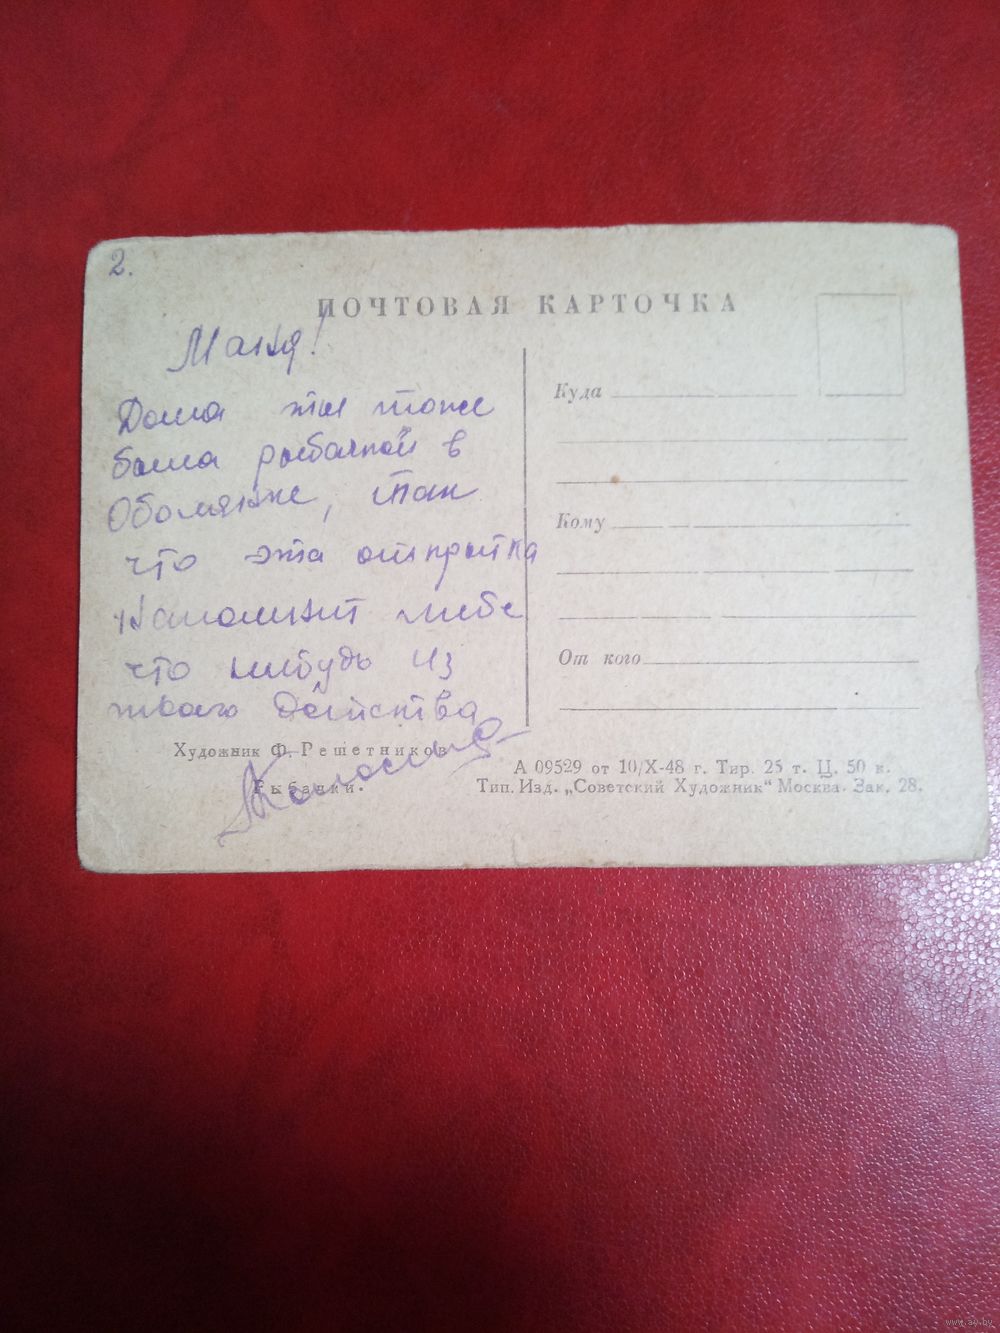 2.
ПОЧТОВАЯ КАРТОЧКА
Маня!
Дома ты тоже
была рыбачкой в
Оболянке, так
что эта открытка
напомнит тебе
что нибудь из
твоего детства
Художник Ф. Решетников
Рыбачки.
Куда
Кому
От кого
А 09529 от 10/X-48 г. Тир. 25 т. Ц. 50 к.
Тип. Изд. „Советский Художник" Москва. Зак. 28.
www.ay.by